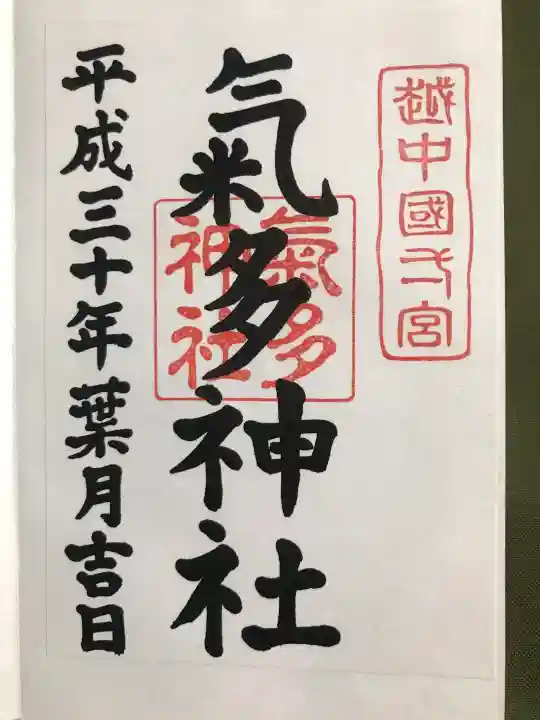 越中國弌宮
氣多神社
氣多
神社
平成三十年葉月吉日